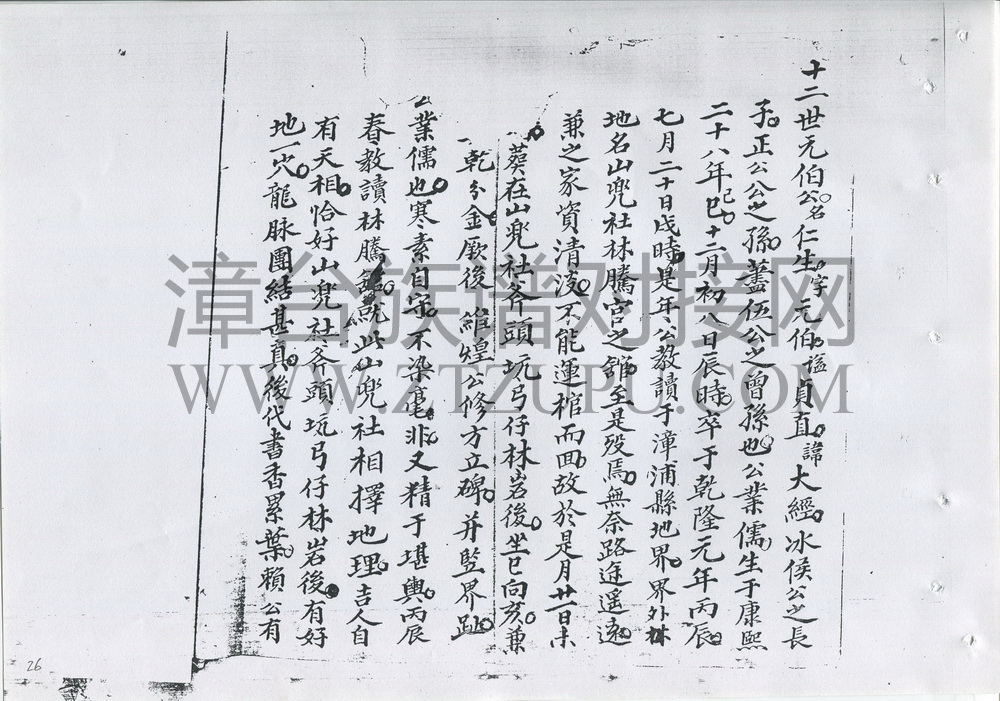 十二世元伯公名仁生字元伯諡貞直諱大經冰侯公之長
子正公公之孫藎伍公之曾孫也公業儒生于康熙
二十八年己巳十二月初八日辰時卒于乾隆元年丙辰
七月二十日戌時是年公教讀于漳浦縣地界界外林
地名山兜社林騰宮之館至是歿焉無奈路途遙遠
兼之家資清淡不能運棺而回故於是月廿一日未
葬在山兜社斧頭坑弓仔林岩後坐巳向亥兼
乾分金厥後維煌公修方立碑并監界趾
公業儒也寒素自守不染毫非又精于堪輿丙辰
春教讀林騰館就此山兜社相擇地理吉人自
有天相恰好山兜社斧頭坑弓仔林岩後有好
地一穴龍脉團結甚真後代書香累葉賴公有
漳台族谱对接网
WWW.ZTZUPU.COM
26